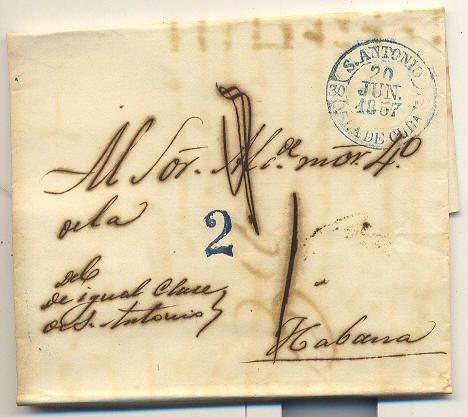 S. ANTONIO
20
JUN.
1857
ISLA DE CUBA
Al Sōr. Alc.de mōr. 4.o
de la
2
Del
de igual Clase
de S. Antonio
Habana